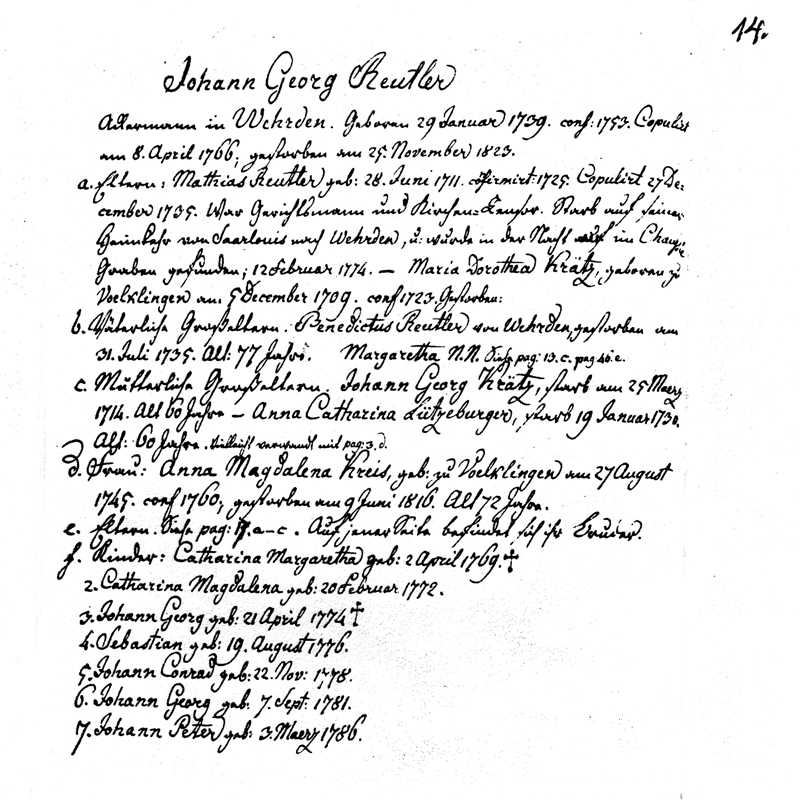 14.
Johann Georg Reutler
Ackermann in Wehrden. Geboren 29 Januar 1739. conf: 1753. Copulirt
am 8. April 1766, gestorben am 25. November 1823.
a. Eltern: Mathias Reutler geb: 28. Juni 1711. cofirmirt: 1725. Copulirt 27 De-
cember 1735. War Gerichtsmann und Kirchen-Zensor. Starb auf seiner
Heimkehr von Saarlouis nach Wehrden, u: wurde in der Nacht im
Graben gefunden; 12 Februar 1774. — Maria Dorothea Krätz, geboren zu
Voelklingen am 5 December 1709. conf 1723. Gestorben:
b. Väterliche Großeltern. Benedictus Reutler von Wehrden, gestorben am
31. Juli 1735. Alt: 77 Jahre. Margaretha N.N. Siehe pag: 13. c. pag 46. e.
c. Mütterliche Großeltern. Johann Georg Krätz, starb am 25 Maerz
1714. Alt 60 Jahre – Anna Catharina Lützeburger, starb 19 Januar 1730.
Alt: 60 Jahre. Vielleicht verwandt mit pag: 3. d.
d. Frau: Anna Magdalena Kreis, geb: zu Voelklingen am 27 August
1745. conf 1760, gestorben am 9 Juni 1816. Alt 72 Jahre.
e. Eltern. Siehe pag: a-c. Auf jener Seite befindet sich ihr Bruder.
f. Kinder: Catharina Margaretha geb: 2 April 1769. †
2. Catharina Magdalena geb: 20 Februar 1772.
3. Johann Georg geb: 21 April 1774 †
4. Sebastian geb: 19. August 1776.
5. Johann Conrad geb: 22. Nov: 1778.
6. Johann Georg geb: 7. Sept: 1781.
7. Johann Peter geb: 3. Maerz 1786.